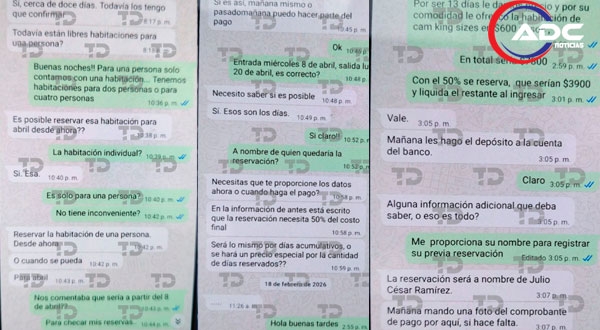 Sí, cerca de doce días. Todavía los tengo
que confirmar.
8:11 p. m.
Todavía están libres habitaciones para
una persona?
8:17 p. m.
Buenas noches!! Para una persona solo
contamos con una habitación... Tenemos
habitaciones para dos personas o para
cuatro personas
10:36 p. m.
Es posible reservar esa habitación para
abril desde ahora??
10:38 p. m.
La habitación individual?
10:39 p. m.
Si. Esa.
10:40 p. m.
Es solo para una persona?
10:40 p. m.
No tiene inconveniente?
10:40 p. m.
Reservar la habitación de una persona.
Desde ahora
10:42 p. m.
O cuando se pueda
10:42 p. m.
Para abril
10:43 p. m.
Nos comentaba que sería a partir del 8
de abril??
Para checar mis reservas
10:44 p. m.
Si es así, mañana mismo o
pasadomañana puedo hacer parte del
pago
10:45 p. m.
Ok
10:45 p. m.
Entrada miércoles 8 de abril, salida lu
20 de abril, es correcto?
10:48 p. m.
Necesito saber si es posible
10:48 p. m.
Sí. Esos son los días.
10:49 p. m.
Si claro!!
10:52 p. m.
A nombre de quien quedaría la
reservación?
10:52 p. m.
Necesitas que te proporcione los datos
ahora o cuando haga el pago?
10:53 p. m.
En la información de antes está escrito
que la reservación necesita 50% del costo
final
10:58 p. m.
Será lo mismo por días acumulativos, o
se hará un precio especial por la cantidad
de días reservados??
10:59 p. m.
18 de febrero de 2026
11:26 a. m.
Hola buenas tardes
2:55 p. m.
Por ser 13 días le damos
precio y por su
comodidad le ofrezco la habitación de
cam king sizes en $600
ADC
NOTICIAS
En total sería $7800
2:59 p. m.
Con el 50% se reserva, que serían $3900
y liquida el restante al ingresar
3:01 p. m.
Vale.
3:05 p. m.
Mañana les hago el depósito a la cuenta
del banco.
3:05 p. m.
Claro
3:05 p. m.
Alguna información adicional que deba
saber, o eso es todo?
3:05 p. m.
Me proporciona su nombre para registrar
su previa reservación
Editado 3:05 p. m.
La reservación será a nombre de Julio
César Ramírez.
3:07 p. m.
Mañana mando una foto del comprobante
de pago por aquí, si hace falta.
3:07 p. m.